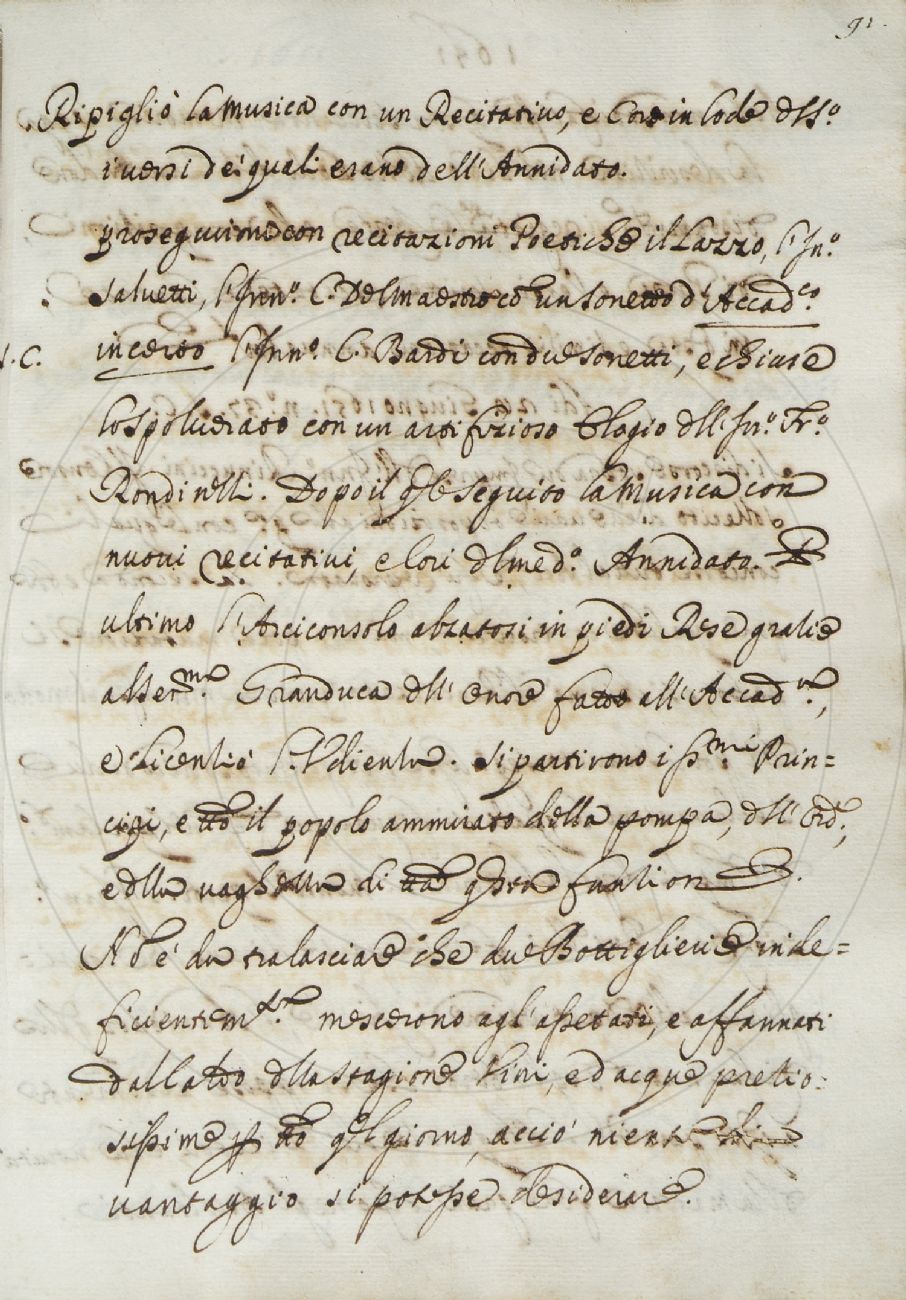 91.
Ripigliò la Musica con un Recitativo, e Coro in lode dll'so.
i versi de' quali erano dell'Annidato.
proseguirno con recitazioni Poetiche il Lazzo, l'Inn.o
Salvetti, l'Inn.o C. Del Maestro cõ un sonetto d'Accad.co
incerto l'Inn.o C. Bardi con due sonetti, e chiuse
lo Spolverato con un artifizioso Elogio dll'Inn.o Fr.o
Rondinelli. Dopo il qle seguito la Musica con
nuovi recitativi, e Cori dl med.o Annidato. P
ultimo l'Arciconsolo alzatosi in piedi Rese gratie
al Ser.mo Granduca dll' onore fatto all'Accad.a,
e licentiò l'Udienza. Si partirono i S.mi Prin=
cipi, e tto il popolo ammirato della pompa, dll'Ord.e,
e dlla vaghezza di tta qsta funtione.
Nõ è da tralasciare che due Bottiglierie inde=
ficientem.te mescerono agl'assetati, e affannati
dall'atto dlla stagione Vini, ed acque pretio=
sissime p tto ql giorno, acciò niente di
vantaggio si potesse desiderare.